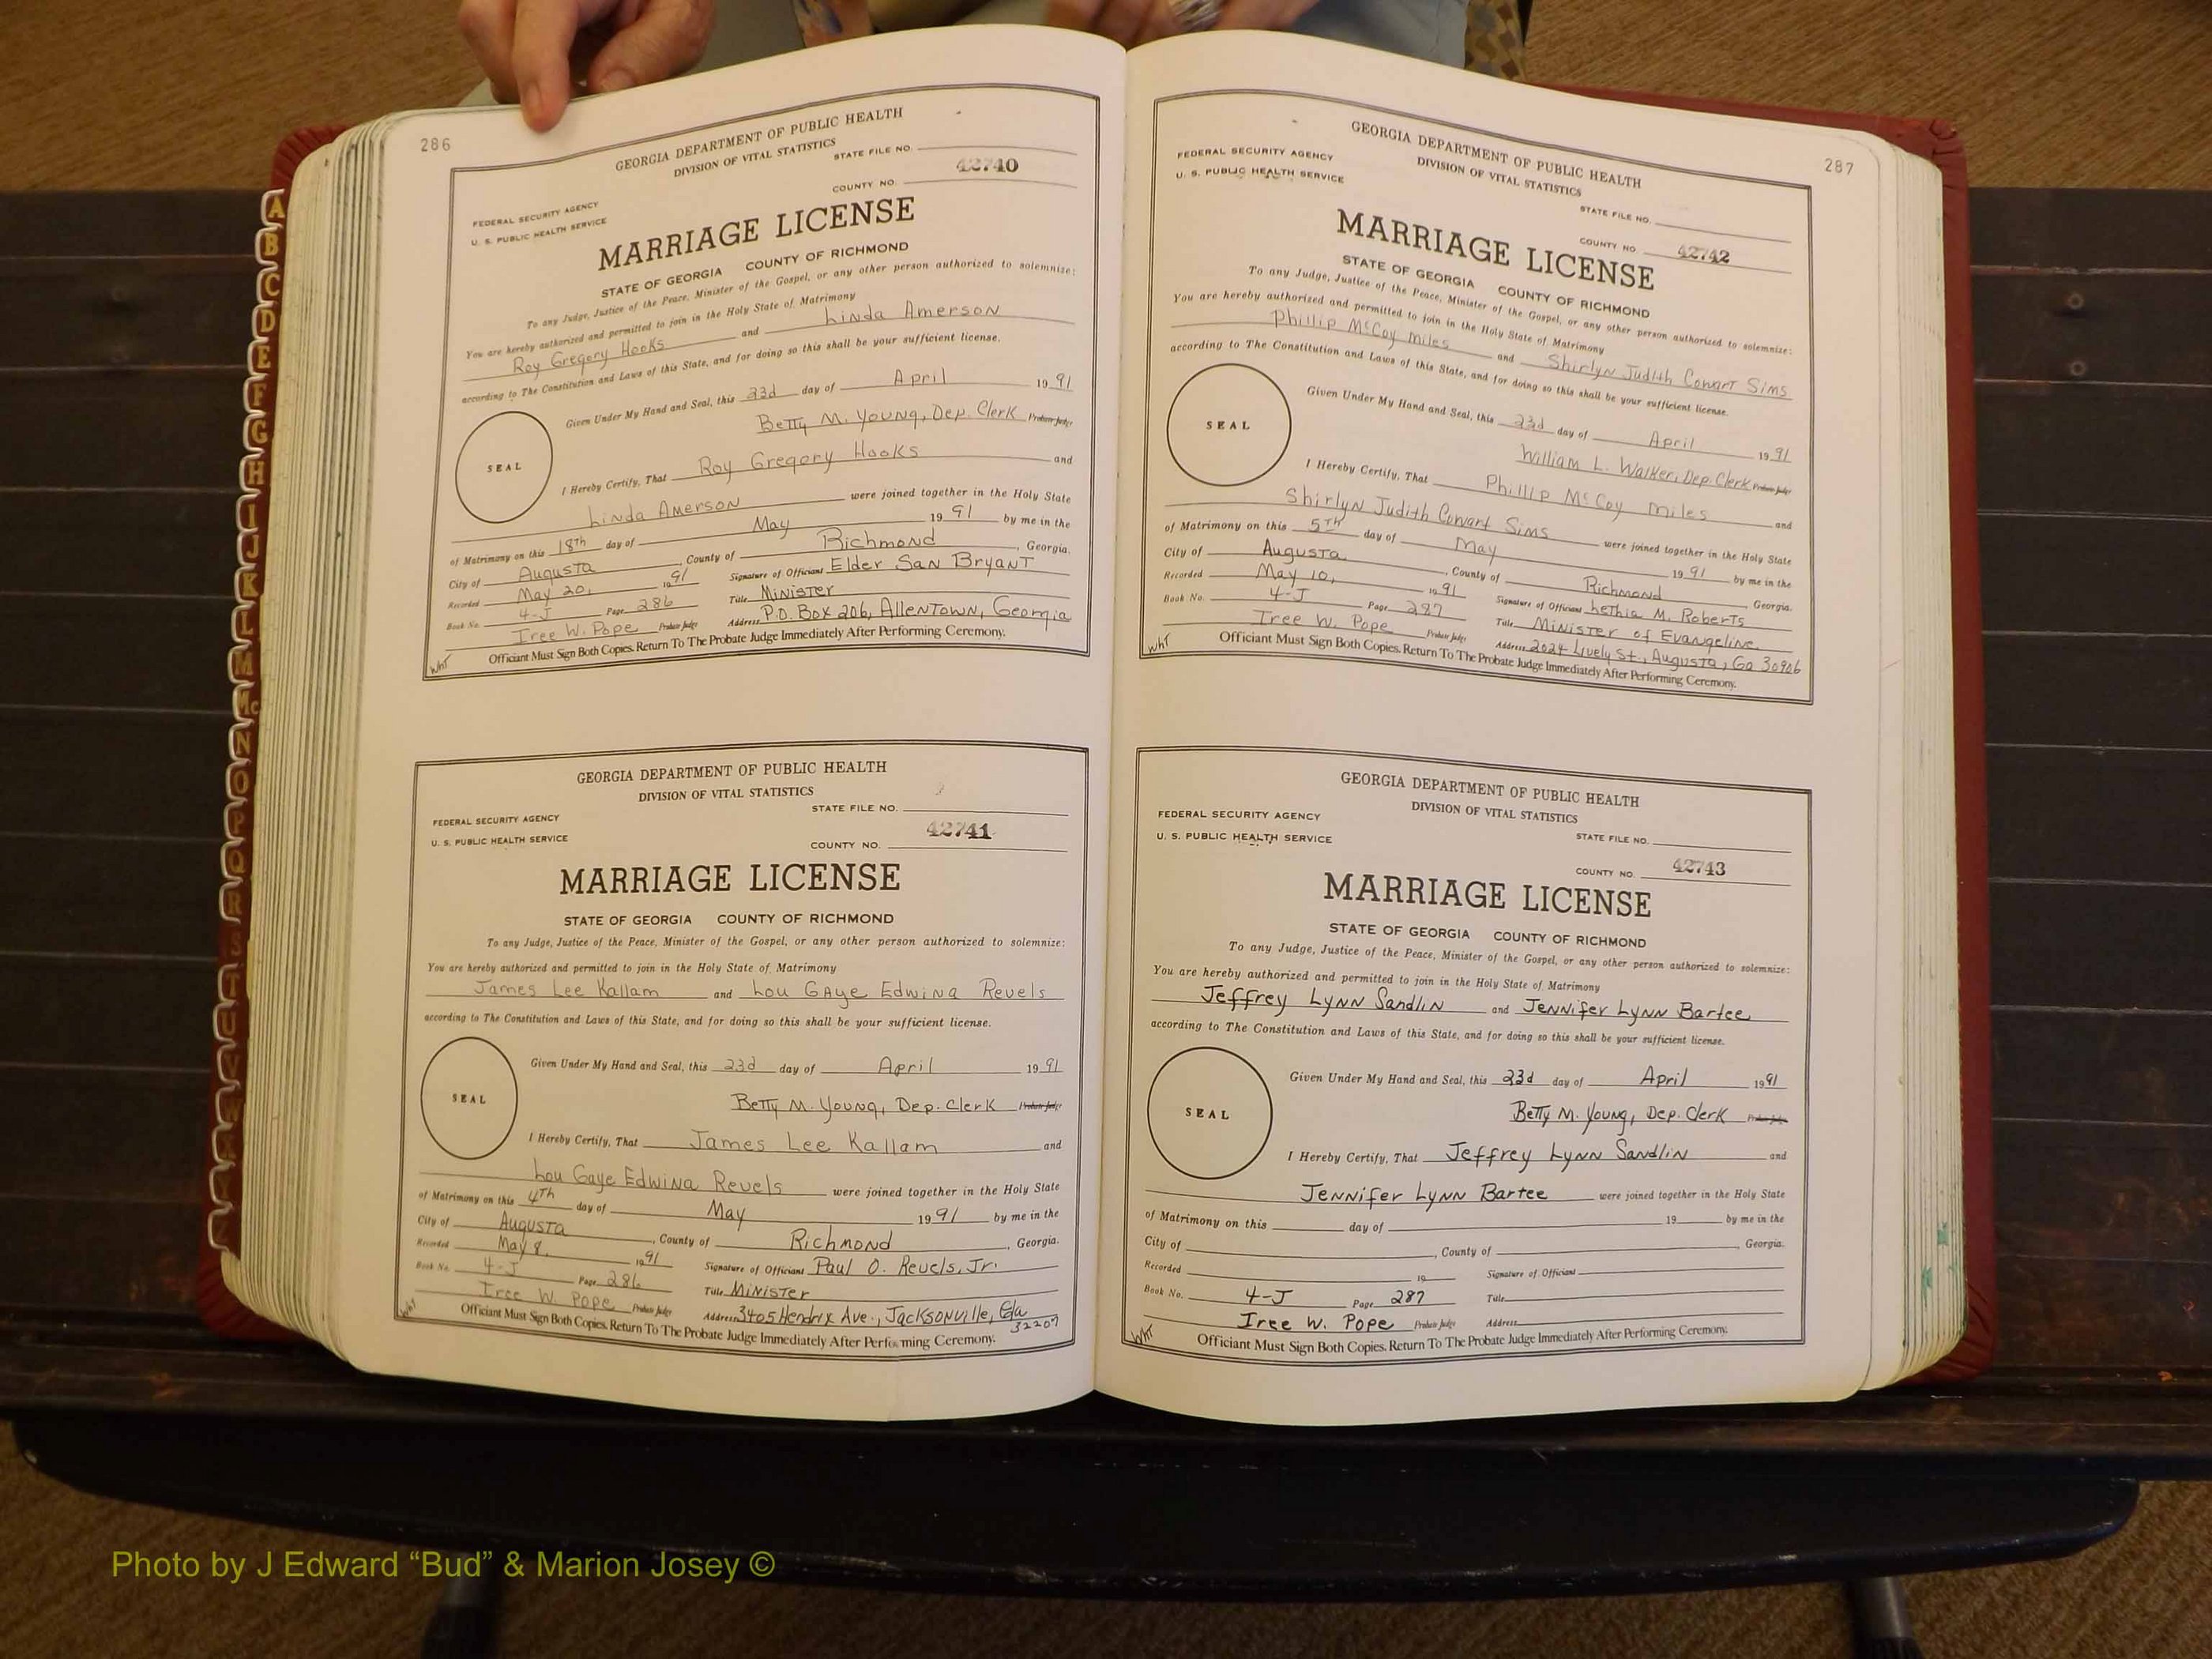 286
GEORGIA DEPARTMENT OF PUBLIC HEALTH
DIVISION OF VITAL STATISTICS
STATE FILE NO.
42740
COUNTY NO.
FEDERAL SECURITY AGENCY
U. S. PUBLIC HEALTH SERVICE
MARRIAGE LICENSE
STATE OF GEORGIA COUNTY OF RICHMOND
To any Judge, Justice of the Peace, Minister of the Gospel, or any other person authorized to solemnize:
You are hereby authorized and permitted to join in the Holy State of Matrimony
Roy Gregory Hooks and Linda Amerson
according to The Constitution and Laws of this State, and for doing so this shall be your sufficient license.
Given Under My Hand and Seal, this 23d day of April 19 91
Betty M. Young, Dep. Clerk Probate Judge
SEAL
I Hereby Certify, That Roy Gregory Hooks and
Linda Amerson were joined together in the Holy State
of Matrimony on this 18th day of May 19 91 by me in the
City of Augusta, County of Richmond, Georgia.
Recorded May 20, 19 91 Signature of Officiant Elder San Bryant
Book No. 4-J Page 286 Title Minister
Iree W. Pope Probate Judge Address P.O. Box 206, Allentown, Georgia
WHT Officiant Must Sign Both Copies. Return To The Probate Judge Immediately After Performing Ceremony.
GEORGIA DEPARTMENT OF PUBLIC HEALTH
DIVISION OF VITAL STATISTICS
STATE FILE NO.
FEDERAL SECURITY AGENCY
42741
U. S. PUBLIC HEALTH SERVICE
COUNTY NO.
MARRIAGE LICENSE
STATE OF GEORGIA COUNTY OF RICHMOND
To any Judge, Justice of the Peace, Minister of the Gospel, or any other person authorized to solemnize:
You are hereby authorized and permitted to join in the Holy State of Matrimony
James Lee Kallam and Lou Gaye Edwina Revels
according to The Constitution and Laws of this State, and for doing so this shall be your sufficient license.
Given Under My Hand and Seal, this 23d day of April 19 91
SEAL
Betty M. Young, Dep. Clerk Probate Judge
I Hereby Certify, That James Lee Kallam and
Lou Gaye Edwina Revels were joined together in the Holy State
of Matrimony on this 4th day of May 19 91 by me in the
City of Augusta, County of Richmond, Georgia.
Recorded May 8, 19 91 Signature of Officiant Paul O. Revels, Jr.
Book No. 4-J Page 286 Title Minister
Iree W. Pope Probate Judge Address 3405 Hendrix Ave., Jacksonville, Fla
32207
WHT Officiant Must Sign Both Copies. Return To The Probate Judge Immediately After Performing Ceremony.
287
GEORGIA DEPARTMENT OF PUBLIC HEALTH
DIVISION OF VITAL STATISTICS
FEDERAL SECURITY AGENCY
U. S. PUBLIC HEALTH SERVICE
STATE FILE NO.
COUNTY NO. 42742
MARRIAGE LICENSE
STATE OF GEORGIA COUNTY OF RICHMOND
To any Judge, Justice of the Peace, Minister of the Gospel, or any other person authorized to solemnize:
You are hereby authorized and permitted to join in the Holy State of Matrimony
Phillip McCoy Miles and Shirlyn Judith Cowart Sims
according to The Constitution and Laws of this State, and for doing so this shall be your sufficient license.
Given Under My Hand and Seal, this 23d day of April 19 91
SEAL
William L. Walker, Dep. Clerk Probate Judge
I Hereby Certify, That Phillip McCoy Miles and
Shirlyn Judith Cowart Sims were joined together in the Holy State
of Matrimony on this 5th day of May 19 91 by me in the
City of Augusta, County of Richmond Georgia.
Recorded May 10, 19 91 Signature of Officiant Lethia M. Roberts
Book No. 4-J Page 287 Title Minister of Evangeline
Iree W. Pope Probate Judge Address 2024 Lively St., Augusta, Ga 30906
WHT Officiant Must Sign Both Copies. Return To The Probate Judge Immediately After Performing Ceremony.
GEORGIA DEPARTMENT OF PUBLIC HEALTH
DIVISION OF VITAL STATISTICS
FEDERAL SECURITY AGENCY
U. S. PUBLIC HEALTH SERVICE
STATE FILE NO.
COUNTY NO. 42743
MARRIAGE LICENSE
STATE OF GEORGIA COUNTY OF RICHMOND
To any Judge, Justice of the Peace, Minister of the Gospel, or any other person authorized to solemnize:
You are hereby authorized and permitted to join in the Holy State of Matrimony
Jeffrey Lynn Sandlin and Jennifer Lynn Bartee
according to The Constitution and Laws of this State, and for doing so this shall be your sufficient license.
Given Under My Hand and Seal, this 23d day of April 19 91
SEAL
Betty M. Young, Dep. Clerk Probate Judge
I Hereby Certify, That Jeffrey Lynn Sandlin and
Jennifer Lynn Bartee were joined together in the Holy State
of Matrimony on this day of 19 by me in the
City of , County of , Georgia.
Recorded 19 Signature of Officiant
Book No. 4-J Page 287 Title
Iree W. Pope Probate Judge Address
WHT Officiant Must Sign Both Copies. Return To The Probate Judge Immediately After Performing Ceremony.
A
B
C
D
E
F
G
H
I
J
K
L
M
Mc
N
O
P
Q
R
S
T
U
V
W
Photo by J Edward “Bud” & Marion Josey ©